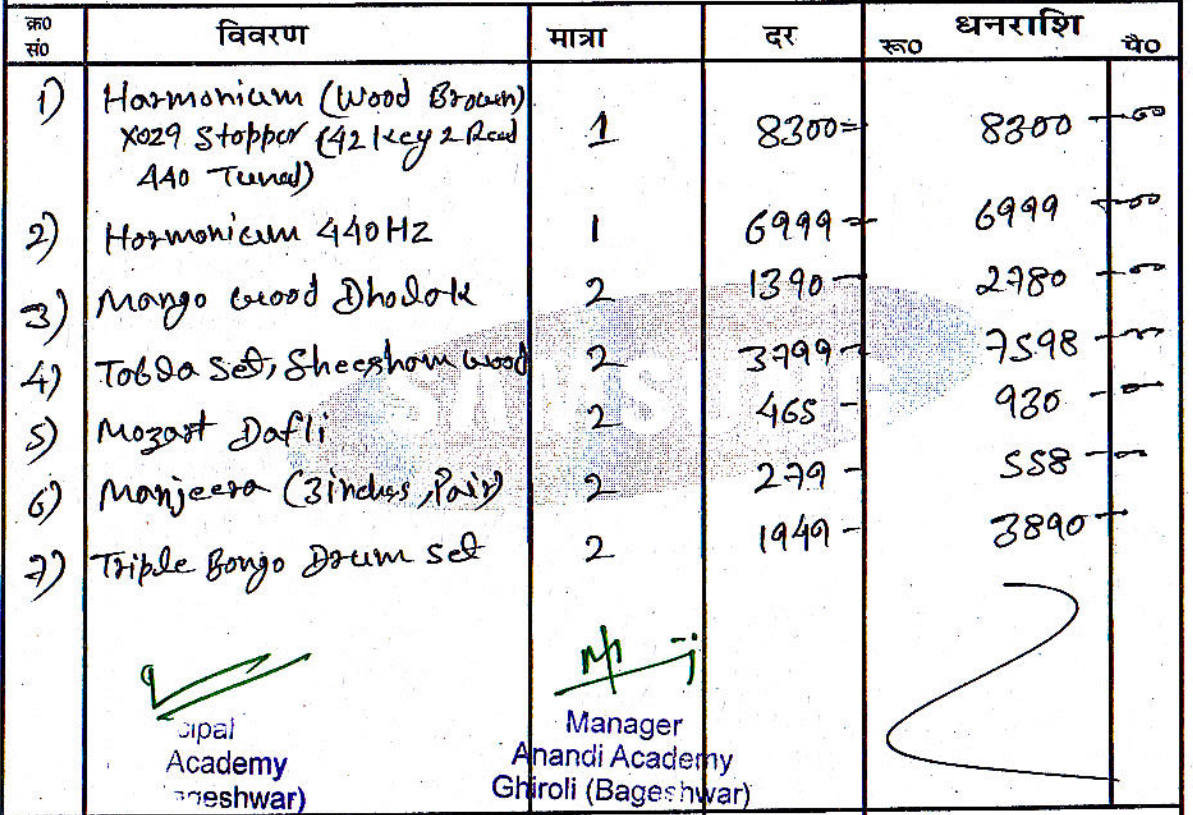 क्र०
सं० विवरण मात्रा दर धनराशि
रू० पै०
1) Harmonium (Wood Brown) 1 8300= 8300 - 00
X029 Stopper (42 Key 2 Reed
440 Tuned)
2) Harmonium 440HZ 1 6999 - 6999 - 00
3) Mango Wood Dholak 2 1390 - 2780 - 00
4) Tabla Set, Sheesham Wood 2 3799 - 7598 - 00
5) Mozart Dafli 2 465 - 930 - 00
6) Manjeera (3 inches, Pair) 2 279 - 558 - 00
7) Triple Bongo Drum Set 2 1949 - 3890 -
Manager
Academy Anandi Academy
Ghiroli (Bageshwar)